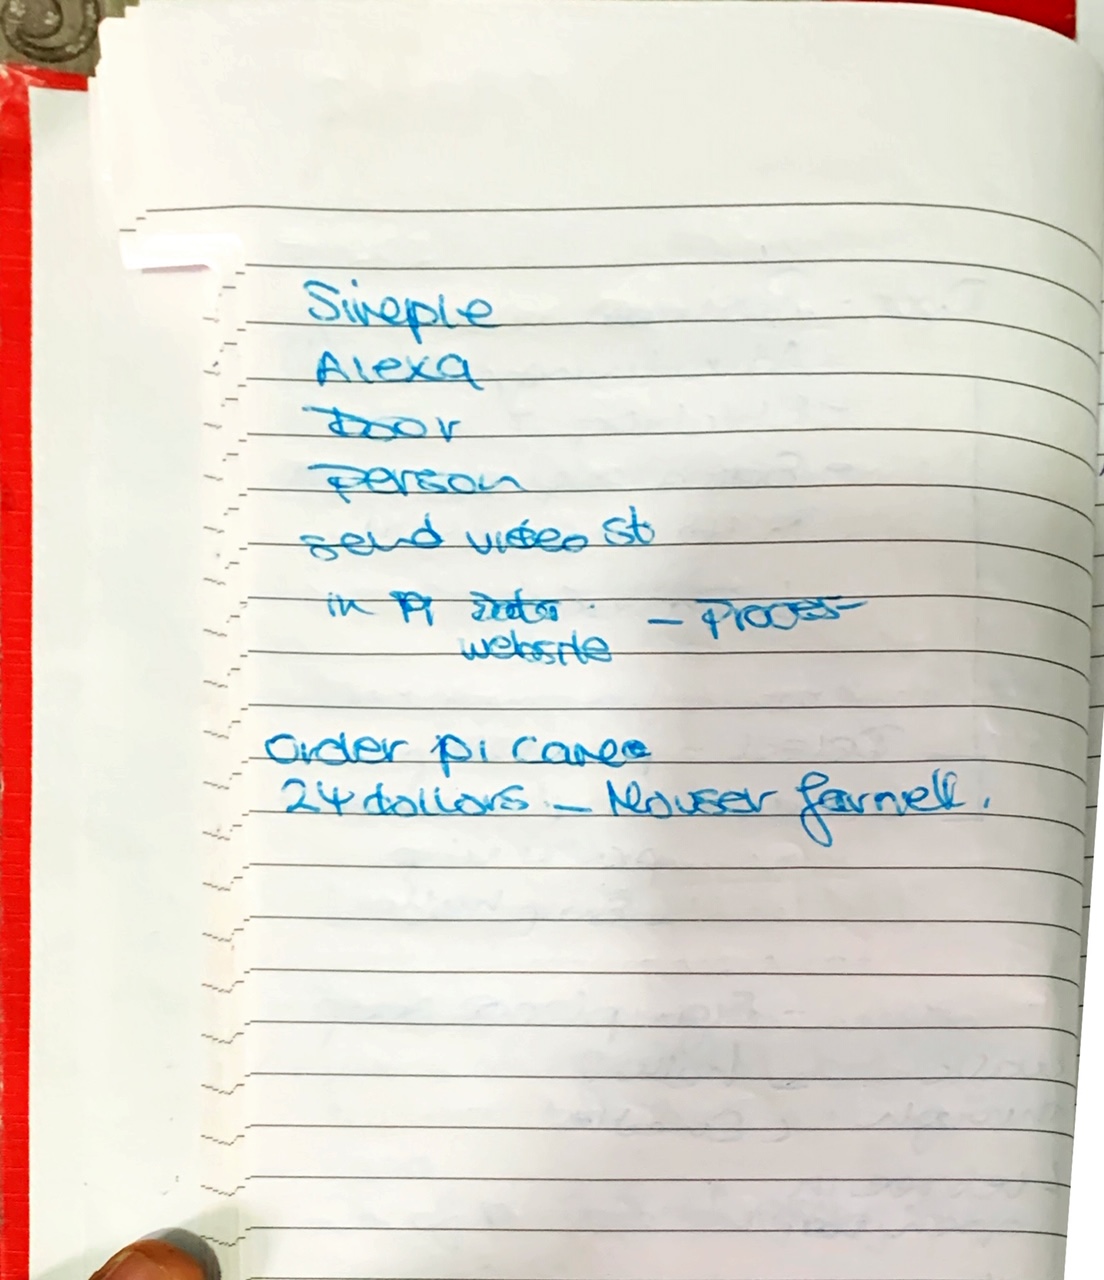 Simple
Alexa
Door
person
send video st
in Pi - Process
website
Order pi camea
24 dollars - Mouser farnell.